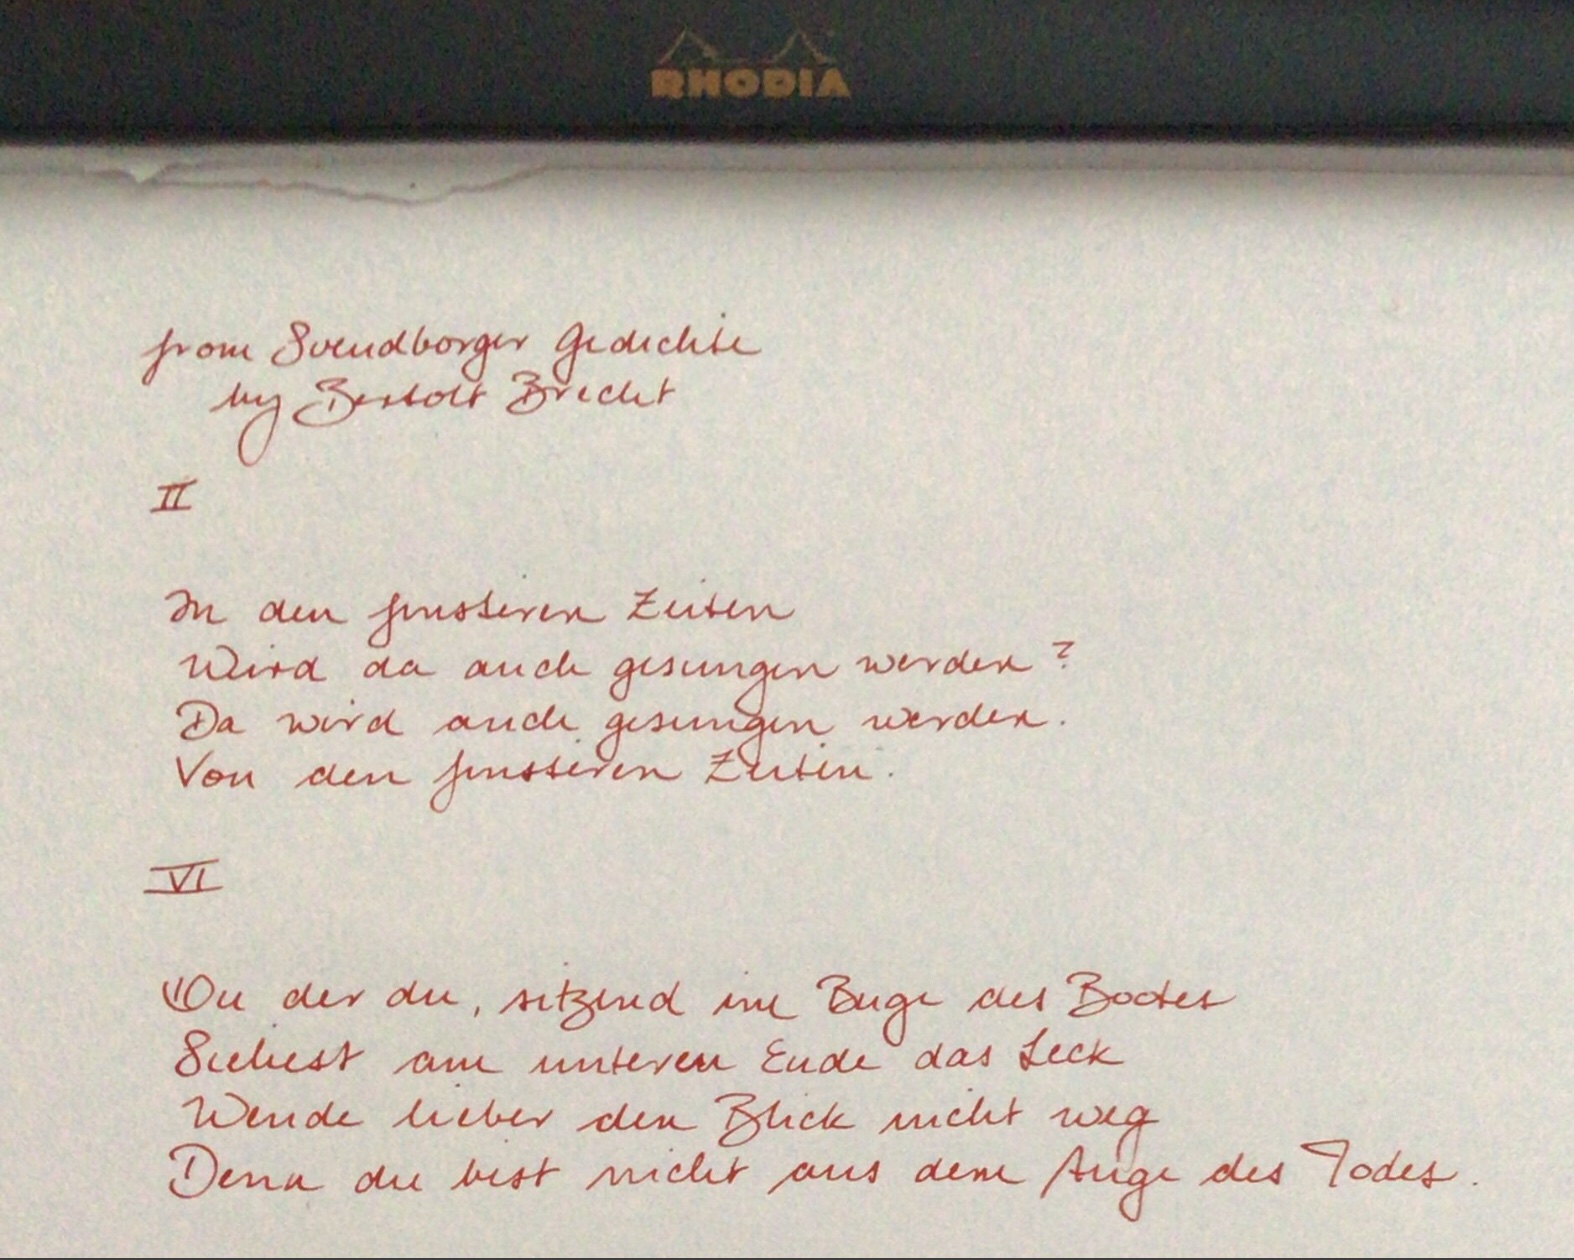 RHODIA
from Svendborger Gedichte
by Bertolt Brecht
II
In den finsteren Zeiten
Wird da auch gesungen werden?
Da wird auch gesungen werden.
Von den finsteren Zeiten.
VI
Du der du, sitzend im Buge des Bootes
Siehest am unteren Ende das Leck
Wende lieber den Blick nicht weg
Denn du bist nicht aus dem Auge des Todes.